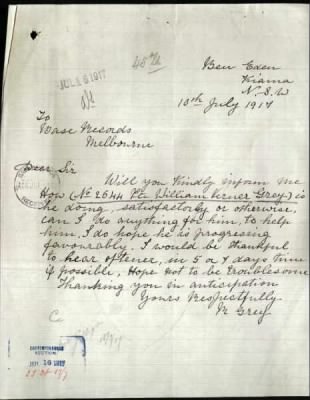 45th
JUL 16 1917
Ben Eden
Kiama
N.S.W
10th July 1917
To
Base Records
Melbourne
Dear Sir
Will you Kindly inform me
How (No 2644 Pte William Verner Grey) is
he doing, satisfactorly or otherwise,
can I do anything for him, to help
him. I do hope he is progresing
favourably. I would be thankful
to hear oftener, in 5 or 7 days time
if possible, Hope not to be troublesome
Thanking you in anticipation
Yours Respectfully
Grey
CORRESPONDENCE
SECTION
JUL 16 1917